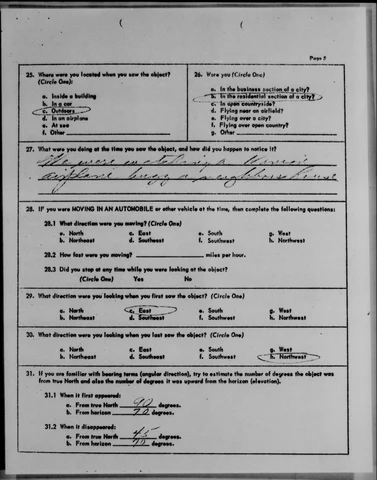 Page 5
25. Where were you located when you saw the object?
(Circle One):
a. Inside a building
b. In a car
c. Outdoors
d. In an airplane
e. At sea
f. Other
26. Were you (Circle One)
a. In the business section of a city?
b. In the residential section of a city?
c. In open countryside?
d. Flying near an airfield?
e. Flying over a city?
f. Flying over open country?
g. Other
27. What were you doing at the time you saw the object, and how did you happen to notice it?
We were watching a
airplane buzz a neighbors house
28. IF you were MOVING IN AN AUTOMOBILE or other vehicle at the time, then complete the following questions:
28.1 What direction were you moving? (Circle One)
a. North c. East e. South g. West
b. Northeast d. Southeast f. Southwest h. Northwest
28.2 How fast were you moving? miles per hour.
28.3 Did you stop at any time while you were looking at the object?
(Circle One) Yes No
29. What direction were you looking when you first saw the object? (Circle One)
a. North c. East e. South g. West
b. Northeast d. Southeast f. Southwest h. Northwest
30. What direction were you looking when you last saw the object? (Circle One)
a. North c. East e. South g. West
b. Northeast d. Southeast f. Southwest h. Northwest
31. If you are familiar with bearing terms (angular direction), try to estimate the number of degrees the object was
from true North and also the number of degrees it was upward from the horizon (elevation).
31.1 When it first appeared:
a. From true North 90 degrees.
b. From horizon 20 degrees.
31.2 When it disappeared:
a. From true North 45 degrees.
b. From horizon 20 degrees.